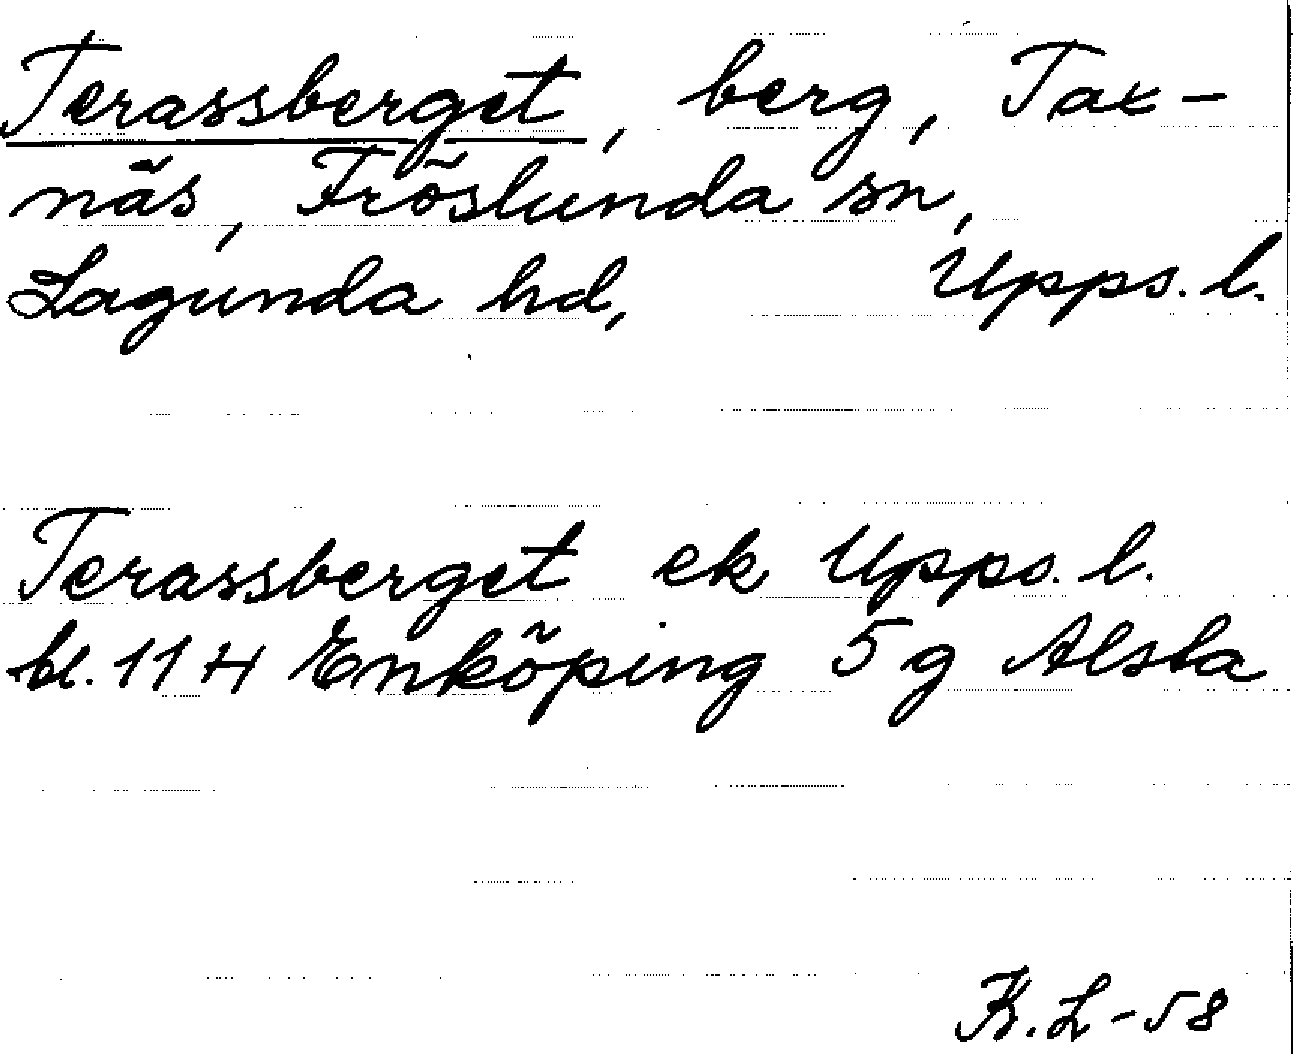 Terassberget, berg, Tax-
näs, Fröslunda sn,
Lagunda hd, Upps. l.
Terassberget ek Upps. l.
bl. 11 H Enköping 5 g Alsta
K. L -58